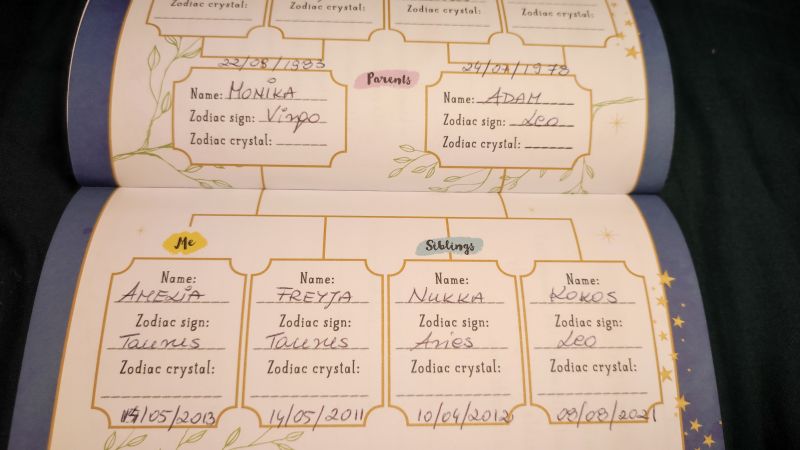 Zodiac crystal: Zodiac crystal: Zodiac crystal: Zodiac crystal:
22/08/1983 24/07/1978
Parents
Name: MONIKA Name: ADAM
Zodiac sign: Virgo Zodiac sign: Leo
Zodiac crystal: Zodiac crystal:
Me Siblings
Name: Name: Name: Name:
AMELIA FREYJA NUKKA KOKOS
Zodiac sign: Zodiac sign: Zodiac sign: Zodiac sign:
Taurus Taurus Aries Leo
Zodiac crystal: Zodiac crystal: Zodiac crystal: Zodiac crystal:
/05/2013 14/05/2011 10/04/2012 09/08/2021